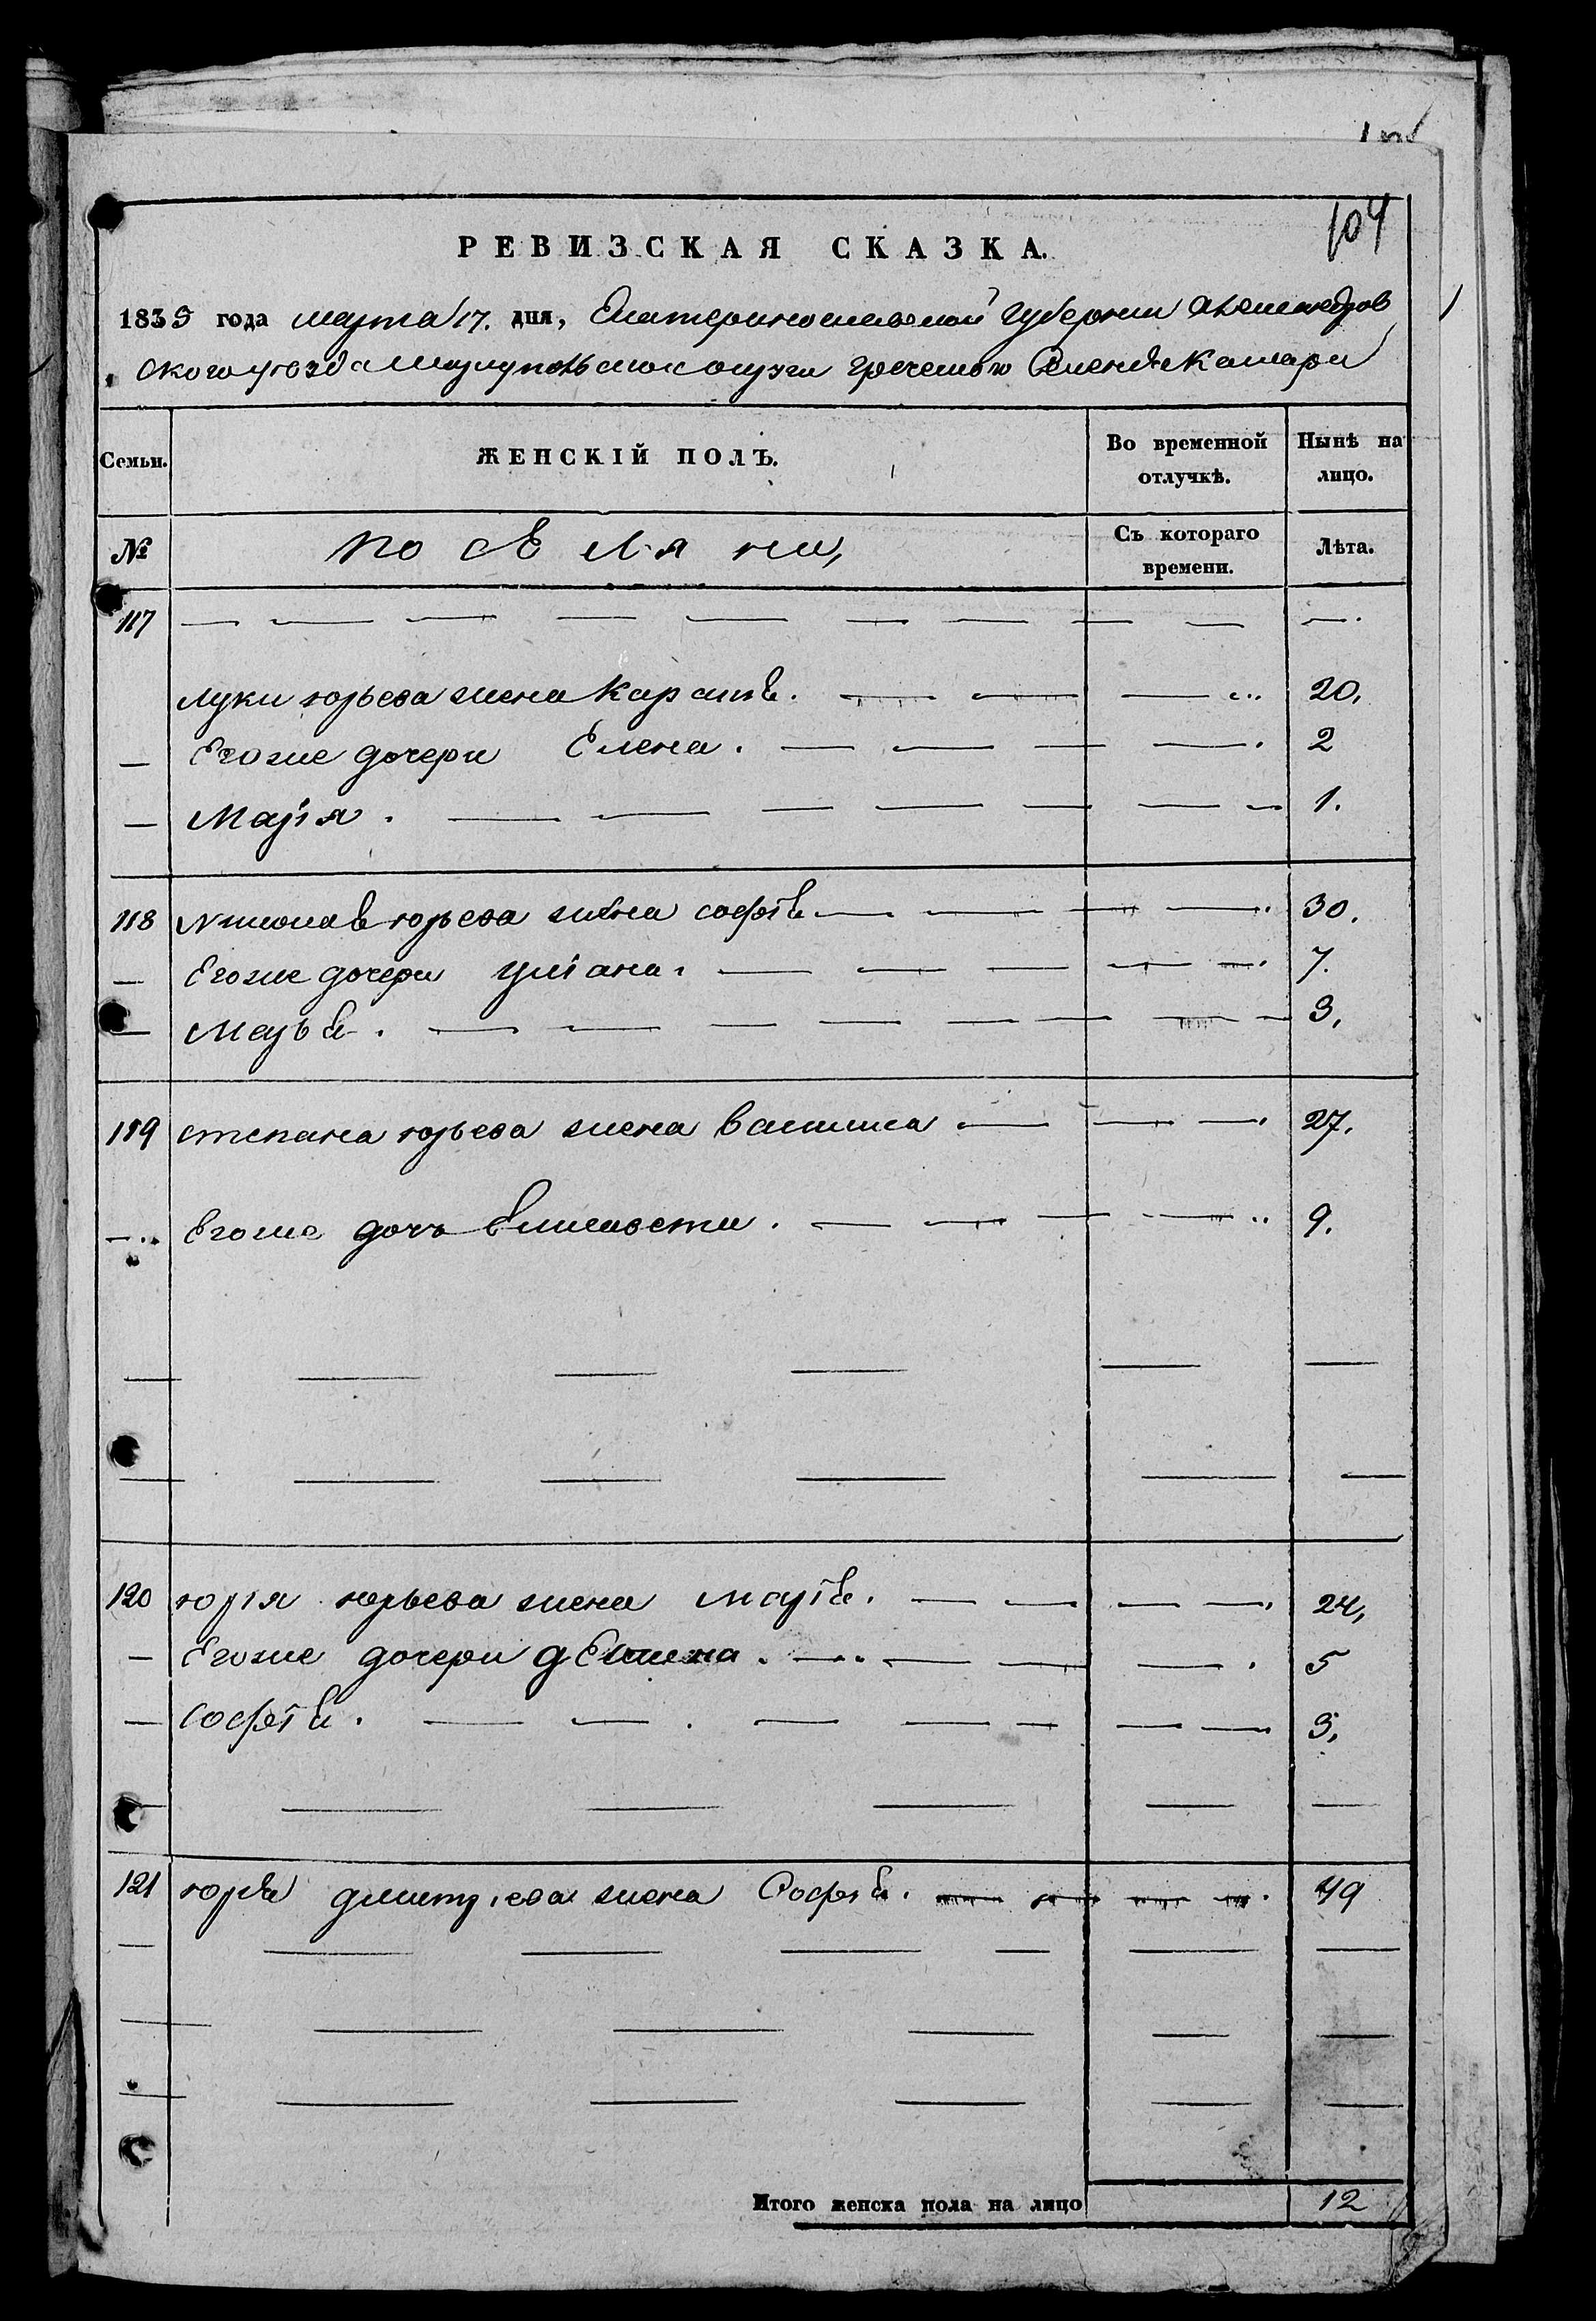 104
РЕВИЗСКАЯ СКАЗКА.
1835 года марта 17. дня, Екатеринославской губернии Александров
ского уезда Мариупольского округи греческого
Семьи. ЖЕНСКІЙ ПОЛЪ. Во временной отлучкѣ. Нынѣ на лицо.
№ поселяни, Съ котораго времени. Лѣта.
117
Луки юрьева жена 20.
— Егоже дочери Елена. 2
— Марія. 1.
118 юрьева жена софіѣ 30.
— Егоже дочери уліана. 7.
— 3.
119 степана юрьева жена василиса 27.
— Егоже дочь 9.
120 юрія юрьева жена маріѣ. 24,
— Егоже дочери 5
— софіѣ. 3.
121 юрѣ дмитріева жена Софіѣ. 49
Итого женска пола на лицо 12